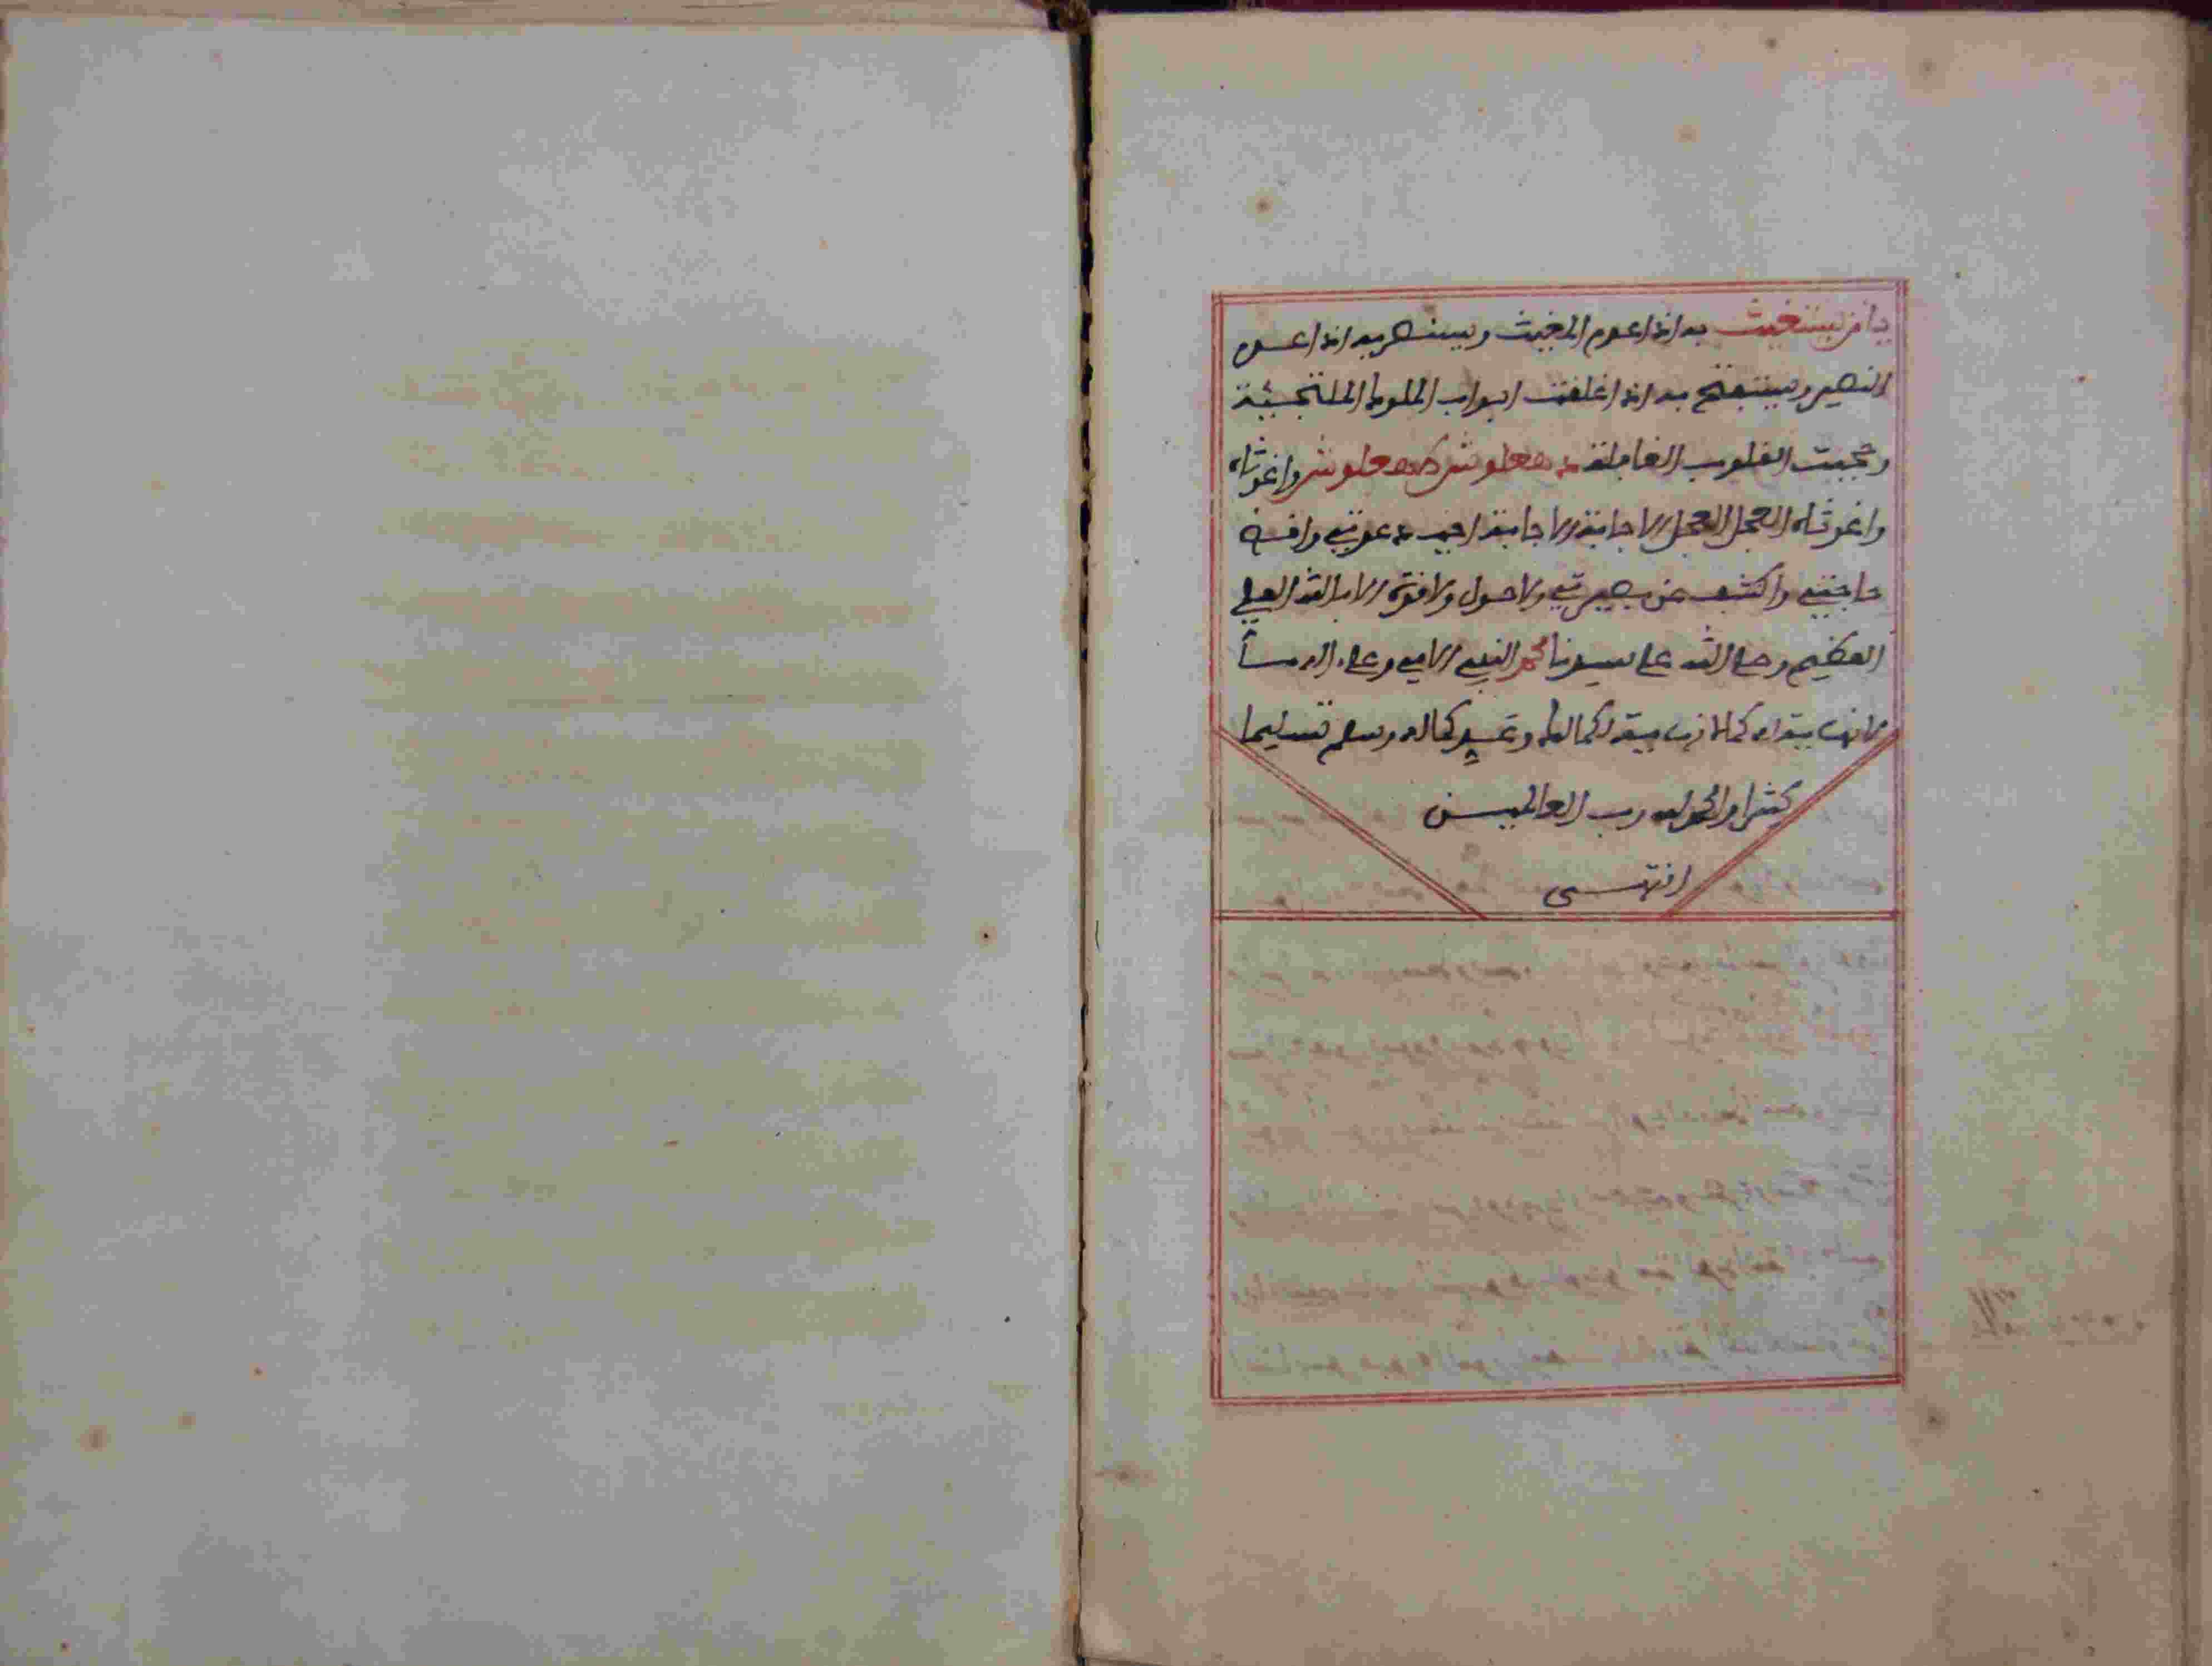 يا من يستغيث به اذا عدم المغيث ويستنصر به اذا عدم
النصير ويستفتح به اذا غلقت ابواب الملوك الملتجئة
وحجبت القلوب الغافلة طهفلوش طهفلوش واغوثاه
واغوثاه العجل العجل الاجابة الاجابة اجب دعوتي واقض
حاجتي واكشف عن بصيرتي ولا حول ولا قوة الا بالله العلي
العظيم وصلى الله على سيدنا محمد النبي الامي وعلى اله
كما لا نهاية لكمالك وعد كماله وسلم تسليما
كثيرا والحمد لله رب العالمين
انتهى